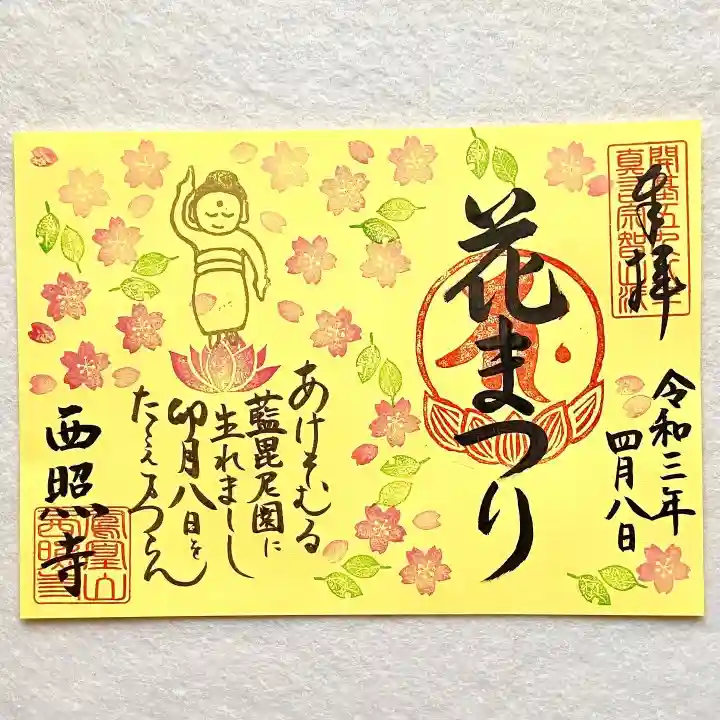 奉拝
開基五百年
真言宗智山派
令和三年
四月八日
花まつり
あけそむる
藍毘尼園に
生れましし
卯月八日を
たたえまつらん
西照寺
鳳皇山
西照寺